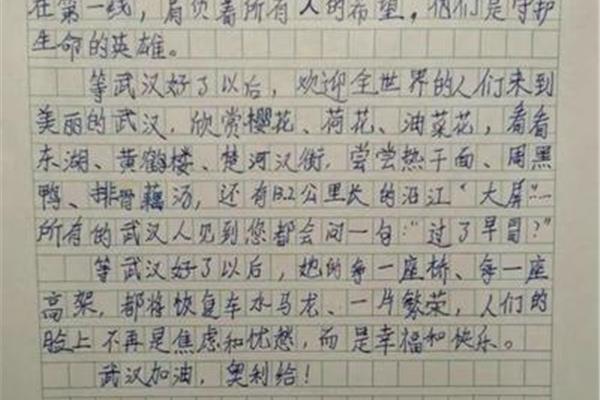 在第一线，肩负着所有人的希望，他们是守护
生命的英雄。
等武汉好了以后，欢迎全世界的人们来到
美丽的武汉，欣赏樱花、荷花、油菜花，看看
东湖、黄鹤楼、楚河汉街，尝尝热干面、周黑
鸭、排骨藕汤，还有13.2公里长的沿江“大屏”……
所有的武汉人见到您都会问一句：“过了早冒？”
等武汉好了以后，她的每一座桥、每一座
高架，都将恢复车水马龙、一片繁荣，人们的
脸上不再是焦虑和忧愁，而是幸福和快乐。
武汉加油，奥利给！